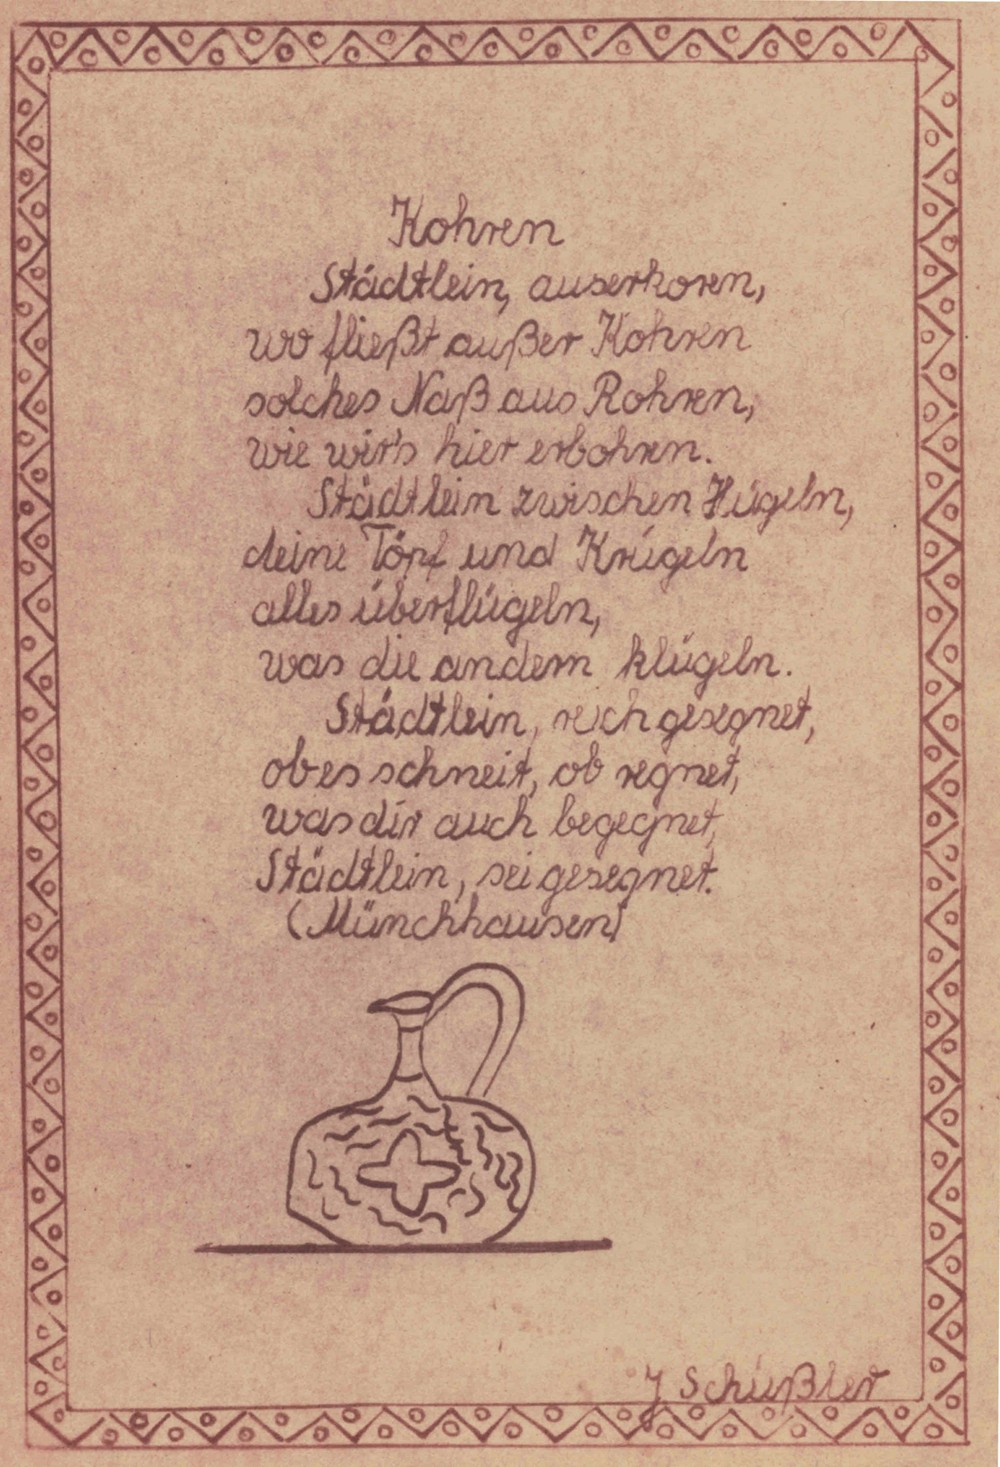 Kohren
Städtlein, auserkoren,
wo fließt außer Kohren
solches Naß aus Rohren,
wie wir's hier erbohren.
Städtlein zwischen Hügeln,
deine Töpf und Krügeln
alles überflügeln,
was die andern klügeln.
Städtlein, reich gesegnet,
ob es schneit, ob regnet,
was dir auch begegnet,
Städtlein, sei gesegnet.
(Münchhausen)
J Schüßler